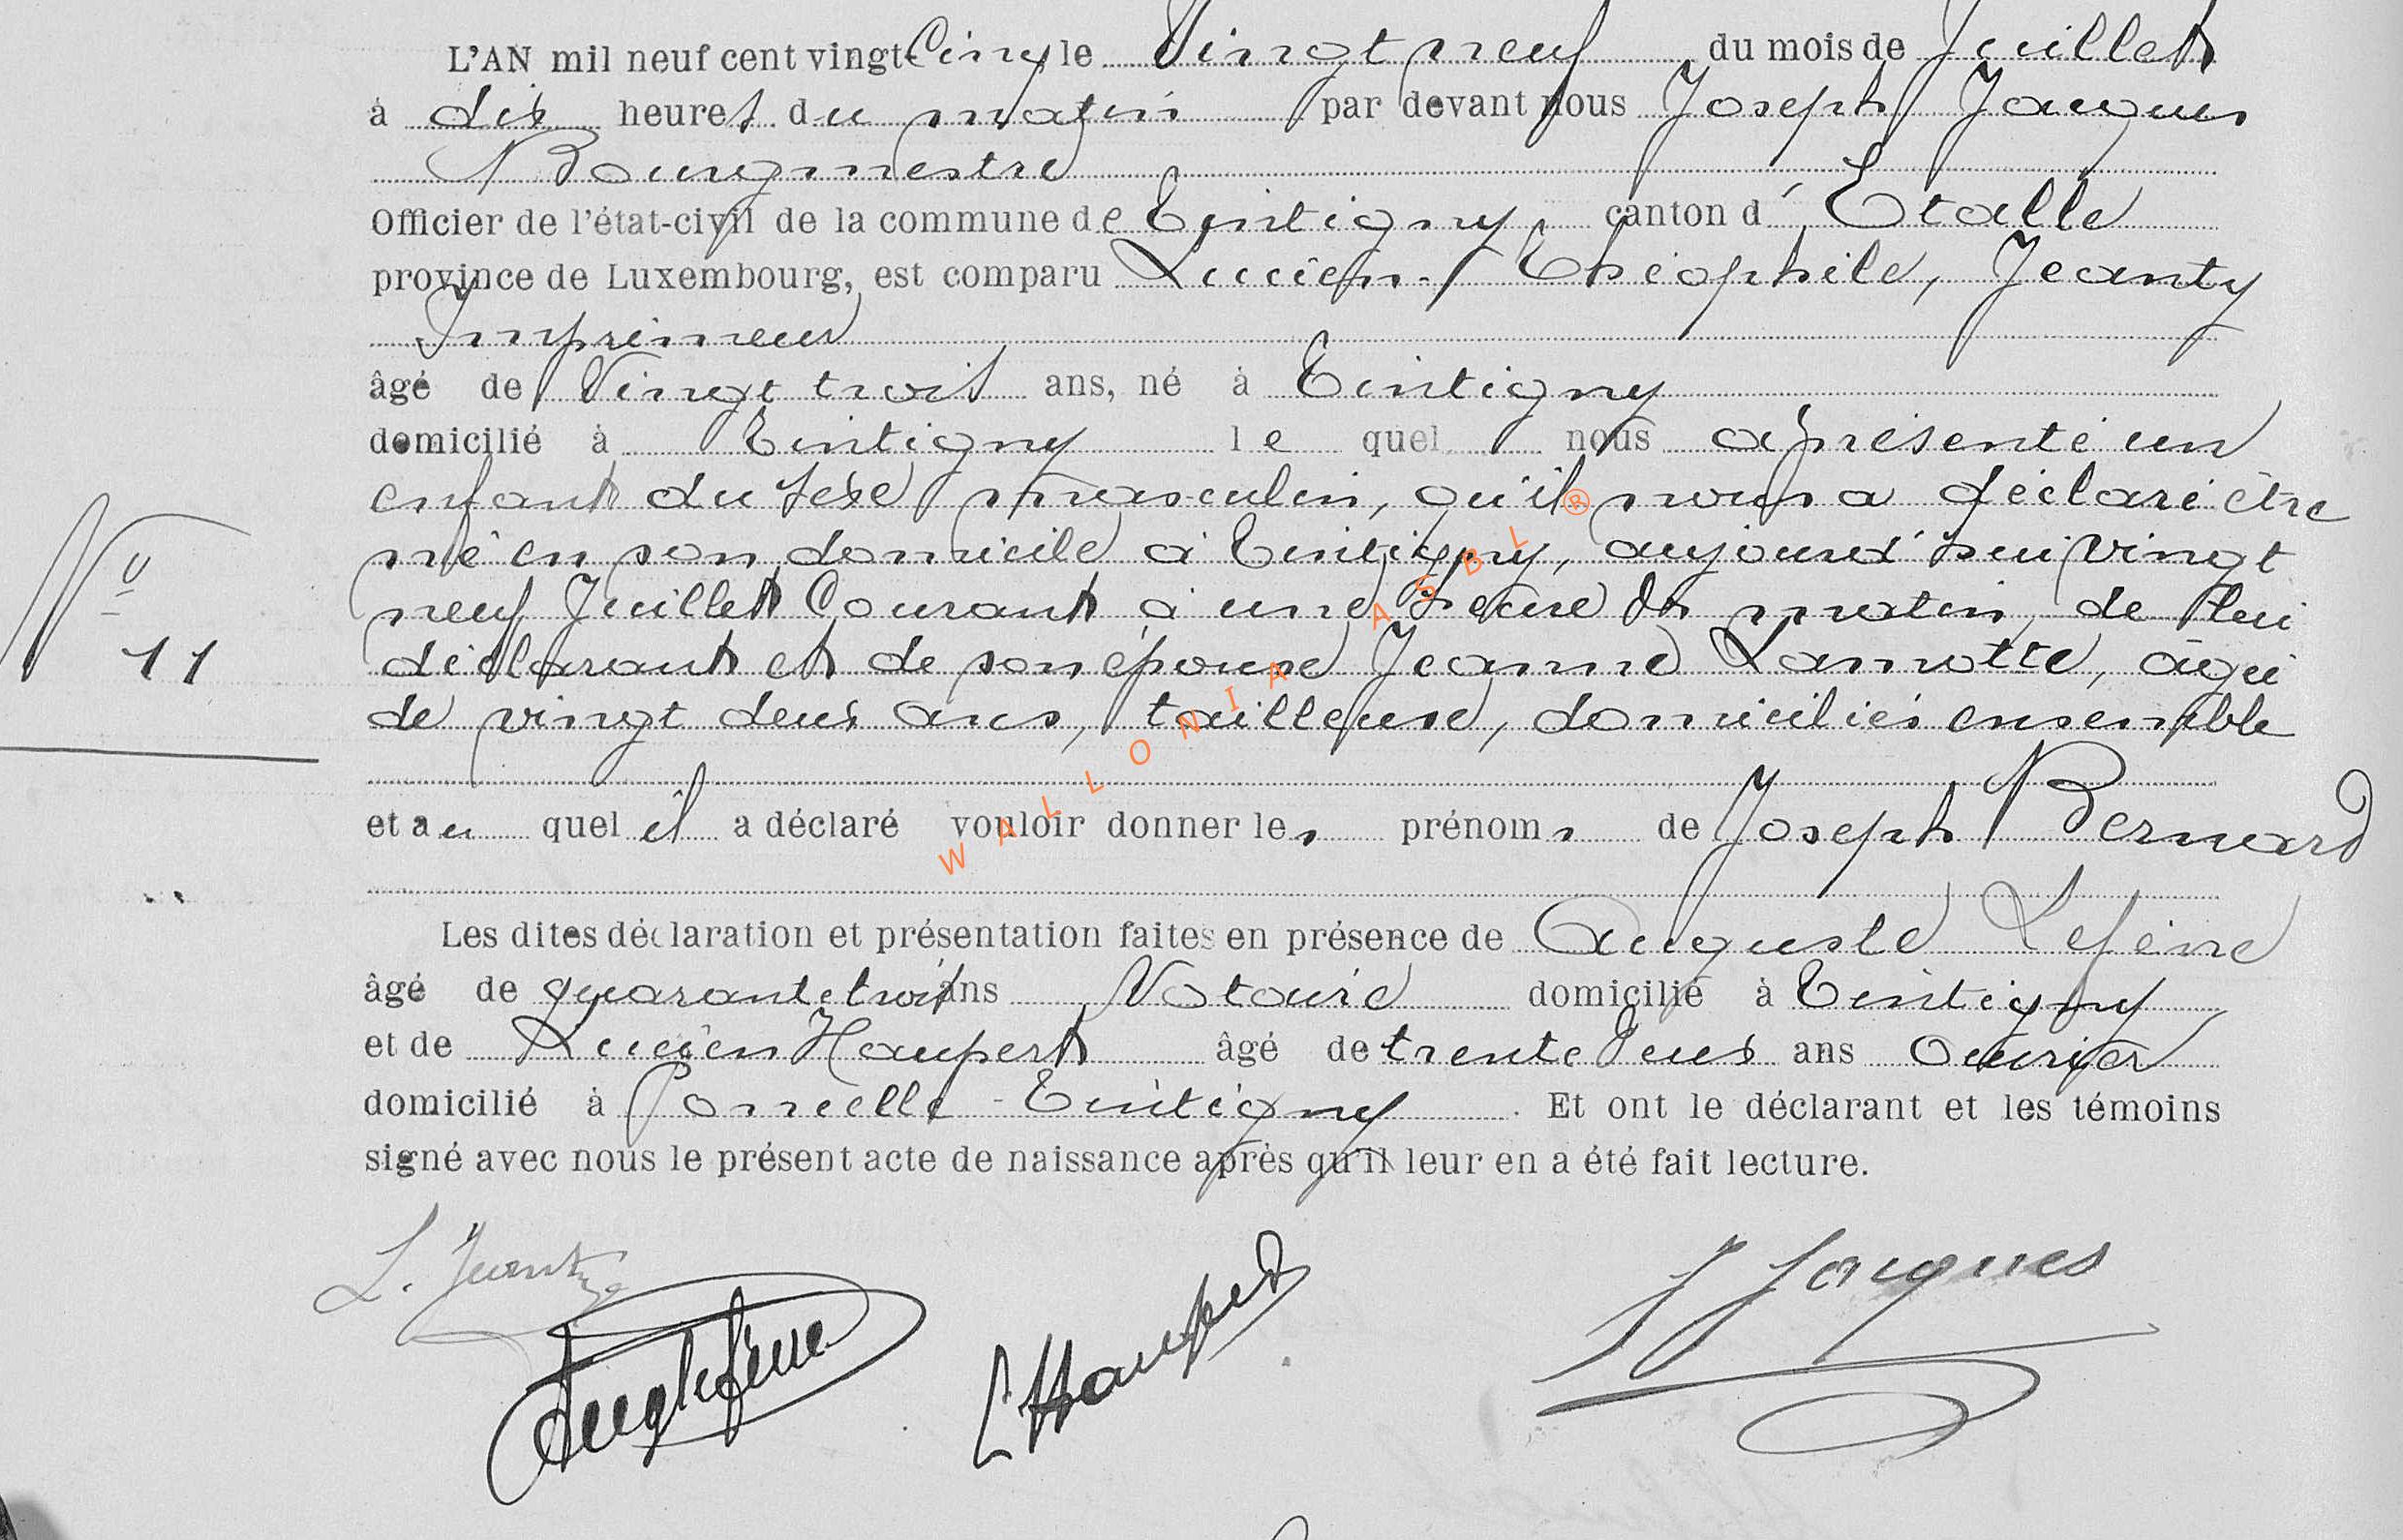 L'AN mil neuf cent vingt Cinq le Vingt neuf du mois de Juillet
à dix heures du matin par devant nous Joseph Jacques
Bourgmestre
Officier de l'état-civil de la commune de Tintigny canton d'Etalle
province de Luxembourg, est comparu Lucien, Théophile, Jeanty
Imprimeur
âgé de Vingt trois ans, né à Tintigny
domicilié à Tintigny le quel nous a présenté un
enfant du sexe masculin, qu'il nous a déclaré être
né en son domicile à Tintigny, aujourd'hui vingt
N° 11
neuf Juillet Courant à une heure du matin, de lui
déclarant et de son épouse Jeanne Lamotte, âgée
de vingt deux ans, tailleuse, domiciliés ensemble
et au quel il a déclaré vouloir donner les prénoms de Joseph Bernard
Les dites déclaration et présentation faites en présence de Auguste Lefèvre
âgé de quarante trois ans Notaire domicilié à Tintigny
et de Lucien Haupert âgé de trente deux ans Ouvrier
domicilié à Poncelle - Tintigny. Et ont le déclarant et les témoins
signé avec nous le présent acte de naissance après qu'il leur en a été fait lecture.
L. Jeanty
Aug Lefèvre
L Haupert
J Jacques
WALLONIA ASBL ®